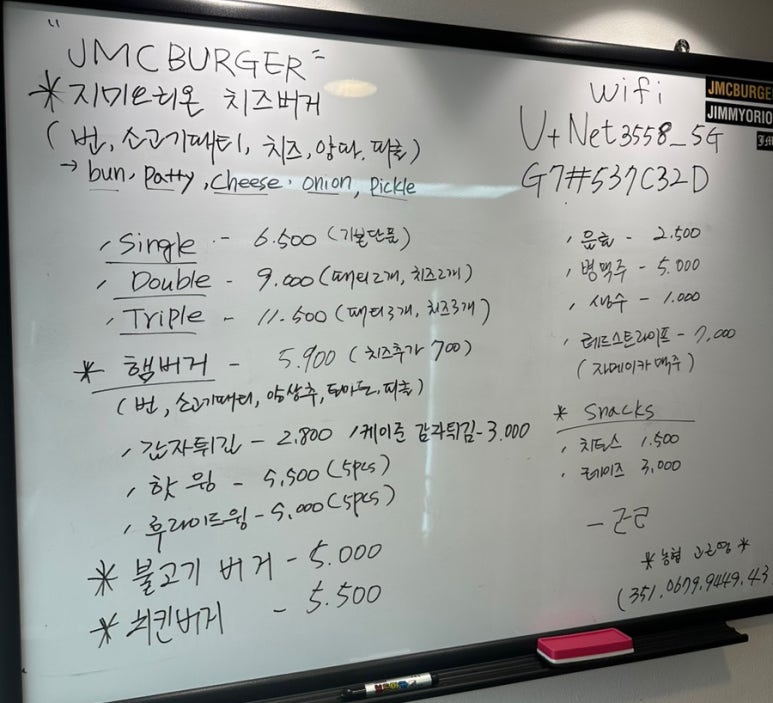 "JMCBURGER"
* 지미오리온 치즈버거
(번, 소고기패티, 치즈, 양파, 피클)
→ bun, patty, cheese, onion, pickle
, Single - 6.500 (기본단품)
, Double - 9.000 (패티2개, 치즈2개)
, Triple - 11.500 (패티3개, 치즈3개)
* 햄버거 - 5.900 (치즈추가 700)
(번, 소고기패티, 양상추, 토마토, 피클)
, 감자튀김 - 2.800 / 케이준 감자튀김 - 3.000
, 핫윙 - 5,500 (5pcs)
, 후라이드윙 - 5,000 (5pcs)
* 불고기 버거 - 5.000
* 치킨버거 - 5.500
wifi
U+Net3558_5G
G7#537C32D
, 음료 - 2.500
, 병맥주 - 5.000
, 생수 - 1.000
, 레드스트라이프 - 7,000
(자메이카 맥주)
* Snacks
, 치토스 1.500
, 레이즈 3,000
* 농협 *
(351.0679.9449.43
JMCBURGE
JIMMYORIO